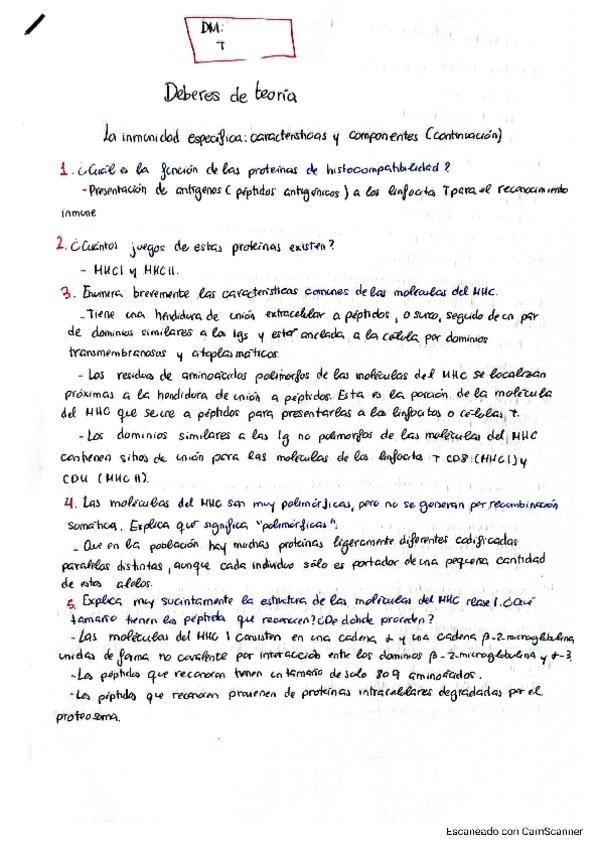 DM:
T
Deberes de teoría
La inmunidad específica: características y componentes (continuación)
1. ¿Cuál es la función de las proteínas de histocompatibilidad?
- Presentación de antígenos (péptidos antigénicos) a los linfocito T para el reconocimiento
inmune
2. ¿Cuántos juegos de estas proteínas existen?
- MHCI y MHCII.
3. Enumera brevemente las características comunes de las moléculas del MHC.
- Tiene una hendidura de unión extracelular a péptidos, o surco, seguido de un par
de dominios similares a la Igs y estar anclada a la célula por dominios
transmembranosos y citoplasmáticos.
- Los residuos de aminoácidos polimorfos de las moléculas del MHC se localizan
próximas a la hendidura de unión a péptidos. Esta es la porción de la molécula
del MHC que se une a péptidos para presentarlas a los linfocitos o células T.
- Los dominios similares a las Ig no polimorfos de las moléculas del MHC
contienen sitios de unión para las moléculas de los linfocito T CD8 (MHCI) y
CD4 (MHC II).
4. Las moléculas del MHC son muy polimórficas, pero no se generan por recombinación
somática. Explica qué significa "polimórficas".
- Que en la población hay muchas proteínas ligeramente diferentes codificadas
paralelos distintas, aunque cada individuo sólo es portador de una pequeña cantidad
de estos alelos.
5. Explica muy sucintamente la estructura de las moléculas del MHC clase I. ¿Qué
tamaño tienen los péptidos que reconocen? ¿De dónde proceden?
- Las moléculas del MHC I consisten en una cadena α y una cadena β-2-microglobulina
unidas de forma no covalente por interacción entre los dominios β-2-microglobulina y α-3.
- Los péptidos que reconocen tienen un tamaño de solo 8 o 9 aminoácidos.
- Los péptidos que reconocen provienen de proteínas intracelulares degradadas por el
proteosoma.
Escaneado con CamScanner